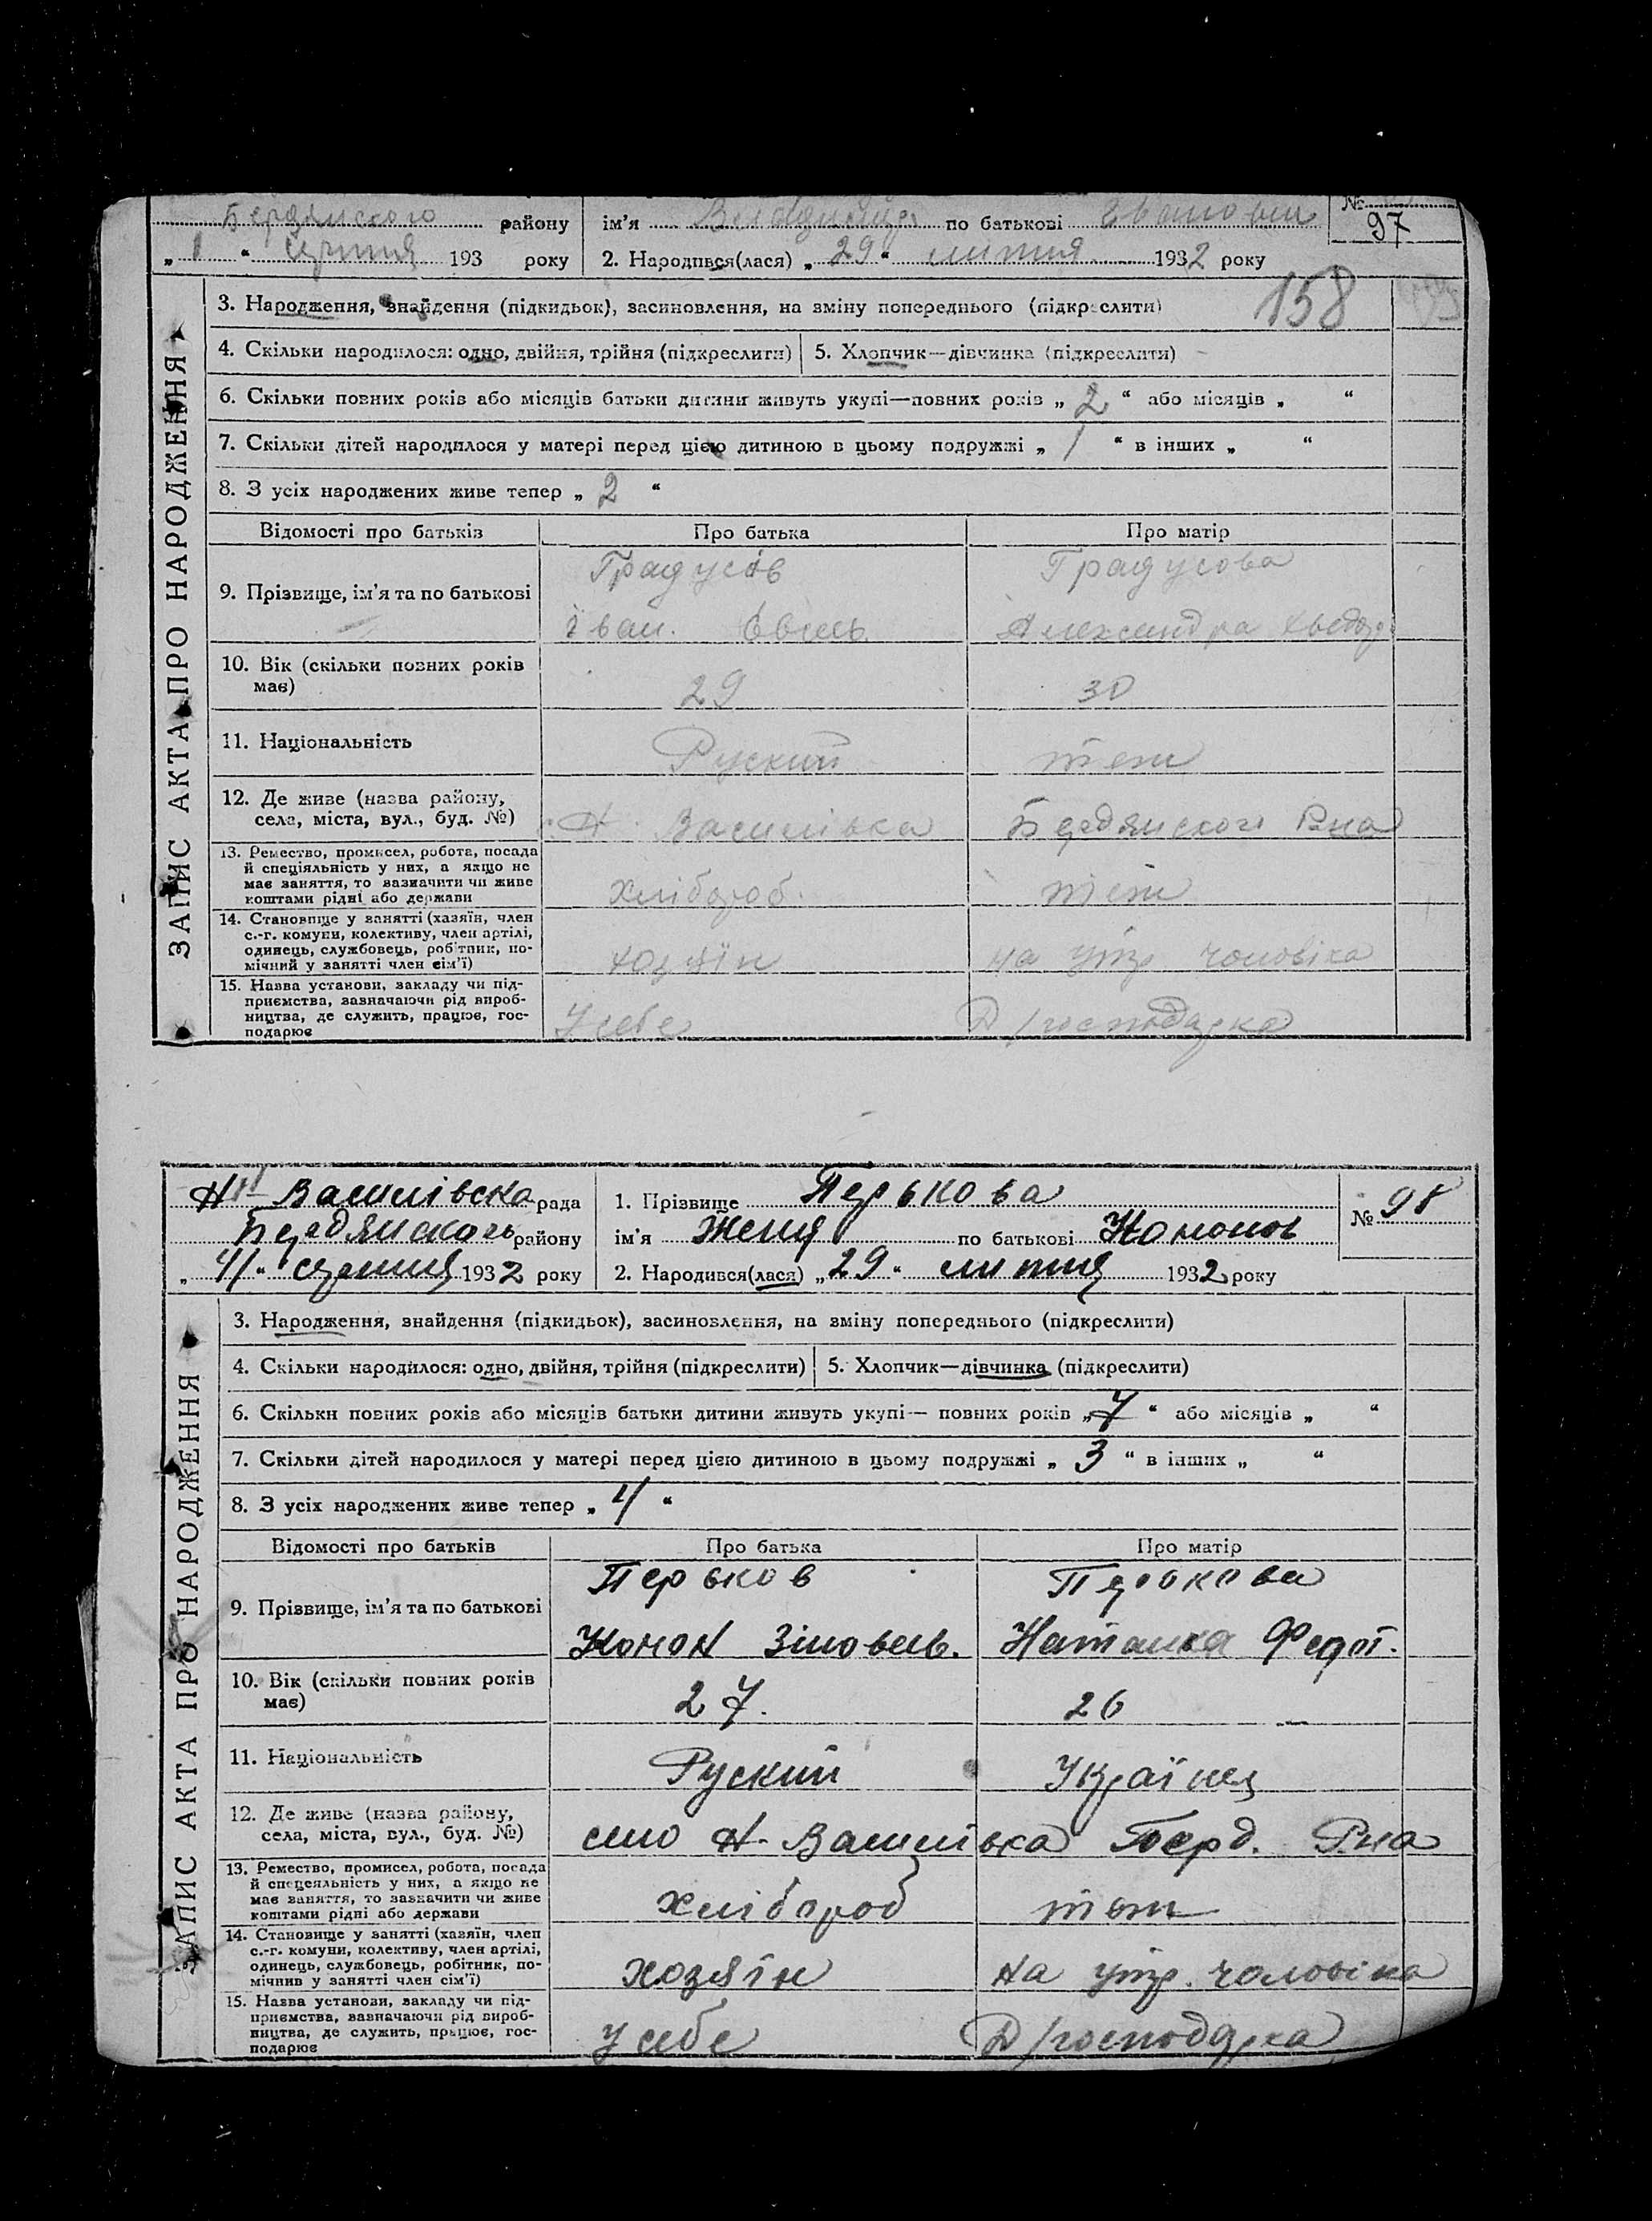 Бердянского району
ім'я Владимир по батькові Іванович
№ 97
„ 1 “ серпня 193 року
2. Народився(лася) „ 29 “ липня 1932 року
158
ЗАПИС АКТА ПРО НАРОДЖЕННЯ
3. Народження, знайдення (підкидьок), засиновлення, на зміну попереднього (підкреслити)
4. Скільки народилося: одно, двійня, трійня (підкреслити)
5. Хлопчик—дівчинка (підкреслити)
6. Скільки повних років або місяців батьки дитини живуть укупі—повних років „ 2 “ або місяців „ “
7. Скільки дітей народилося у матері перед цією дитиною в цьому подружжі „ 1 “ в інших „ “
8. З усіх народжених живе тепер „ 2 “
Відомості про батьків
Про батька
Про матір
9. Прізвище, ім'я та по батькові
Градусів
Іван.
Градусова
Александра
10. Вік (скільки повних років
має)
29
30
11. Національність
Руский
теж
12. Де живе (назва району,
села, міста, вул., буд. №)
Н Василівка Бердянского Р-на
13. Ремество, промисел, робота, посада
й спеціяльність у них, а якщо не
має заняття, то зазначити чи живе
коштами рідні або держави
Хлібороб.
теж
14. Становище у занятті (хазяїн, член
с.-г. комуни, колективу, член артілі,
одинець, службовець, робітник, по-
мічний у занятті член сім'ї)
хозяїн
на утр чоловіка
15. Назва установи, закладу чи під-
приємства, зазначаючи рід вироб-
ництва, де служить, працює, гос-
подарює
У себе
Д/господарка
Василівска рада
1. Прізвище Перькова
№ 98
Бердянского району
ім'я Женя по батькові Кононов
„ 4 “ серпня 1932 року
2. Народився(лася) „ 29 “ липня 1932 року
ЗАПИС АКТА ПРО НАРОДЖЕННЯ
3. Народження, знайдення (підкидьок), засиновлення, на зміну попереднього (підкреслити)
4. Скільки народилося: одно, двійня, трійня (підкреслити)
5. Хлопчик—дівчинка (підкреслити)
6. Скільки повних років або місяців батьки дитини живуть укупі— повних років „ 7 “ або місяців „ “
7. Скільки дітей народилося у матері перед цією дитиною в цьому подружжі „ 3 “ в інших „ “
8. З усіх народжених живе тепер „ 4 “
Відомості про батьків
Про батька
Про матір
9. Прізвище, ім'я та по батькові
Перьков
Конон Зіновьев.
Перькова
Наталка Федот.
10. Вік (скільки повних років
має)
27.
26
11. Національність
Руский
Україця
12. Де живе (назва району,
села, міста, вул., буд. №)
село Н. Василівка Берд. Р-на
13. Ремество, промисел, робота, посада
й спецеяльність у них, а якщо не
має заняття, то зазначити чи живе
коштами рідні або держави
Хлібороб
теж
14. Становище у занятті (хазяїн, член
с.-г. комуни, колективу, член артілі,
одинець, службовець, робітник, по-
мічнив у занятті член сім'ї)
хозяїн
на утр. чоловіка
15. Назва установи, закладу чи під-
приємства, зазначаючи рід вироб-
ництва, де служить, працює, гос-
подарює
У себе
Д/господарка